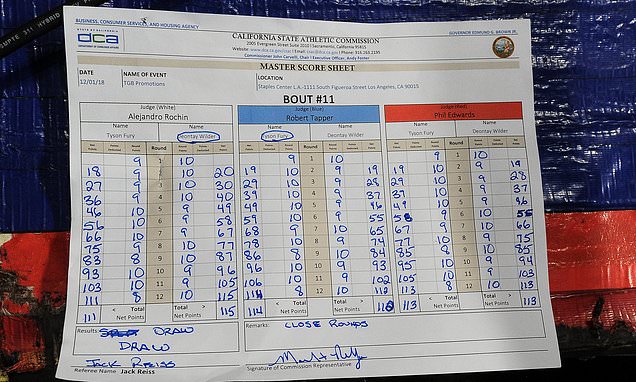 BUSINESS, CONSUMER SERVICES, AND HOUSING AGENCY GOVERNOR EDMUND G. BROWN JR.
STATE OF CALIFORNIA
dca
DEPARTMENT OF CONSUMER AFFAIRS
CALIFORNIA STATE ATHLETIC COMMISSION
2005 Evergreen Street Suite 2010 | Sacramento, California 95815
Website: www.dca.ca.gov/csac | Email: csac@dca.ca.gov | Phone: 916.263.2195
Commissioner John Carvelli, Chair | Executive Officer: Andy Foster
MASTER SCORE SHEET
DATE NAME OF EVENT LOCATION
12/01/18 TGB Promotions Staples Center L.A.-1111 South Figueroa Street Los Angeles, CA 90015
BOUT #11
Judge (White) Judge (Blue) Judge (Red)
Alejandro Rochin Robert Tapper Phil Edwards
Name Name Name Name Name Name
Tyson Fury Deontay Wilder Tyson Fury Deontay Wilder Tyson Fury Deontay Wilder
Round Round Round
9 1 10 9 1 10 9 1 10
18 9 2 10 20 19 10 2 9 19 19 10 2 9 19
27 9 3 10 30 29 10 3 9 28 29 10 3 9 28
36 9 4 10 40 39 10 4 9 37 10 4 9 37
46 10 5 9 49 49 10 5 9 46 49 10 5 9 46
56 10 6 9 58 59 10 6 9 55 58 9 6 10
66 10 7 9 67 68 9 7 10 65 67 9 7 10 66
75 9 8 10 77 78 10 8 9 74 77 10 8 9 75
83 8 9 10 87 86 8 9 10 84 85 8 9 10 85
93 10 10 9 96 96 10 10 9 93 95 10 10 9 94
103 10 11 9 105 106 10 11 9 102 105 10 11 9 103
111 8 12 10 115 114 8 12 10 112 113 8 12 10 113
< Total > < Total > < Total >
111 Net Points 115 114 Net Points 113 Net Points 113
Results: DRAW Remarks: CLOSE ROUNDS
DRAW
Jack Reiss
Referee Name Jack Reiss Signature of Commission Representative